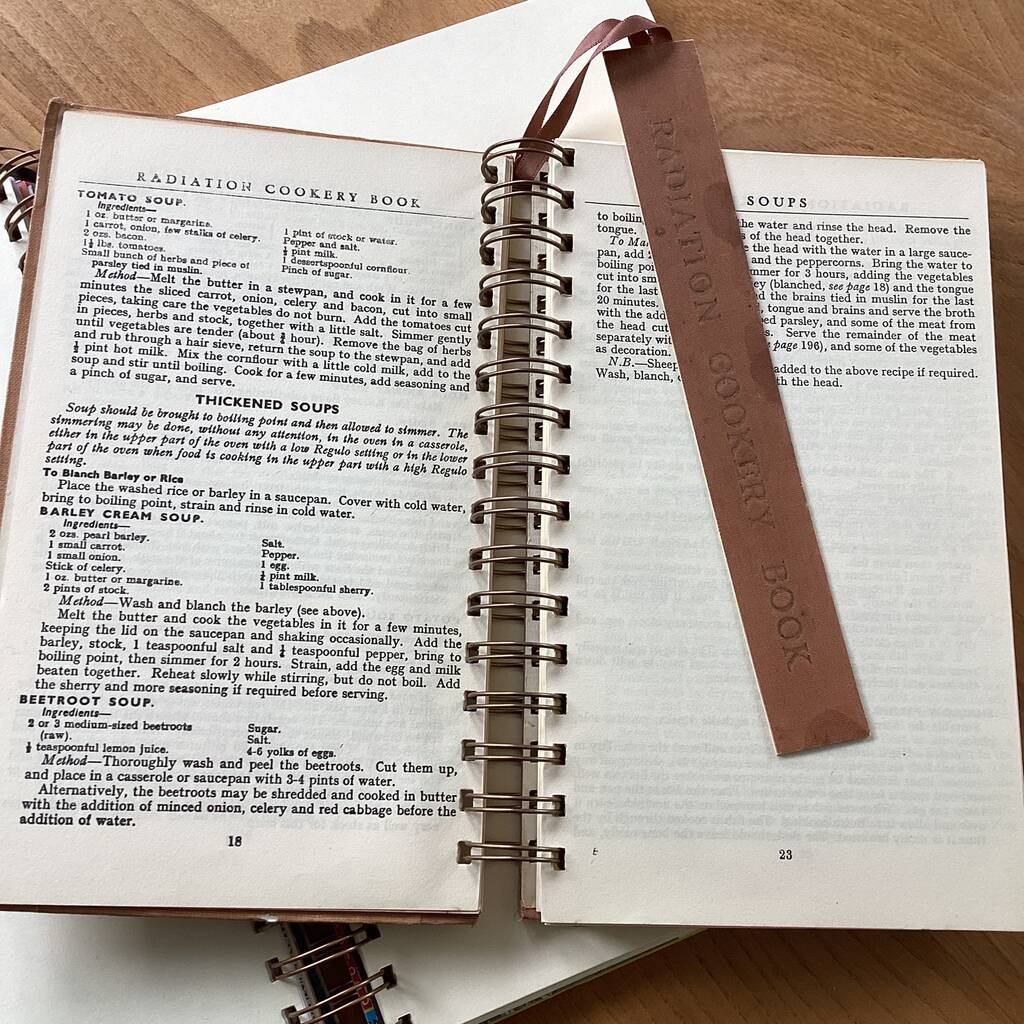 RADIATION COOKERY BOOK
TOMATO SOUP.
Ingredients—
1 oz. butter or margarine.
1 carrot, onion, few stalks of celery.
2 ozs. bacon.
1½ lbs. tomatoes.
Small bunch of herbs and piece of
parsley tied in muslin.
1 pint of stock or water.
Pepper and salt.
pint milk.
1 dessertspoonful cornflour.
Pinch of sugar.
Method—Melt the butter in a stewpan, and cook in it for a few
minutes the sliced carrot, onion, celery and bacon, cut into small
pieces, taking care the vegetables do not burn. Add the tomatoes cut
in pieces, herbs and stock, together with a little salt. Simmer gently
until vegetables are tender (about hour). Remove the bag of herbs
and rub through a hair sieve, return the soup to the stewpan, and add
pint hot milk. Mix the cornflour with a little cold milk, add to the
soup and stir until boiling. Cook for a few minutes, add seasoning and
a pinch of sugar, and serve.
THICKENED SOUPS
Soup should be brought to boiling point and then allowed to simmer. The
simmering may be done, without any attention, in the oven in a casserole,
either in the upper part of the oven with a low Regulo setting or in the lower
part of the oven when food is cooking in the upper part with a high Regulo
setting.
To Blanch Barley or Rice
Place the washed rice or barley in a saucepan. Cover with cold water,
bring to boiling point, strain and rinse in cold water.
BARLEY CREAM SOUP.
Ingredients—
2 ozs. pearl barley.
1 small carrot.
1 small onion.
Stick of celery.
1 oz. butter or margarine.
2 pints of stock.
Salt.
Pepper.
1 egg.
pint milk.
1 tablespoonful sherry.
Method—Wash and blanch the barley (see above).
Melt the butter and cook the vegetables in it for a few minutes,
keeping the lid on the saucepan and shaking occasionally. Add the
barley, stock, 1 teaspoonful salt and teaspoonful pepper, bring to
boiling point, then simmer for 2 hours. Strain, add the egg and milk
beaten together. Reheat slowly while stirring, but do not boil. Add
the sherry and more seasoning if required before serving.
BEETROOT SOUP.
Ingredients—
2 or 3 medium-sized beetroots
(raw).
teaspoonful lemon juice.
Sugar.
Salt.
4-6 yolks of eggs.
Method—Thoroughly wash and peel the beetroots. Cut them up,
and place in a casserole or saucepan with 3-4 pints of water.
Alternatively, the beetroots may be shredded and cooked in butter
with the addition of minced onion, celery and red cabbage before the
addition of water.
18
SOUPS
to the water and rinse the head. Remove the
tongue. of the head together.
To the head with the water in a large sauce-
pan, add and the peppercorns. Bring the water to
boiling for 3 hours, adding the vegetables
cut into (blanched, see page 18) and the tongue
for the last the brains tied in muslin for the last
20 minutes. tongue and brains and serve the broth
with the parsley, and some of the meat from
the head cut Serve the remainder of the meat
separately page 196), and some of the vegetables
as decoration.
N.B.— added to the above recipe if required.
Wash, blanch, the head.
E
23
RADIATION COOKERY BOOK